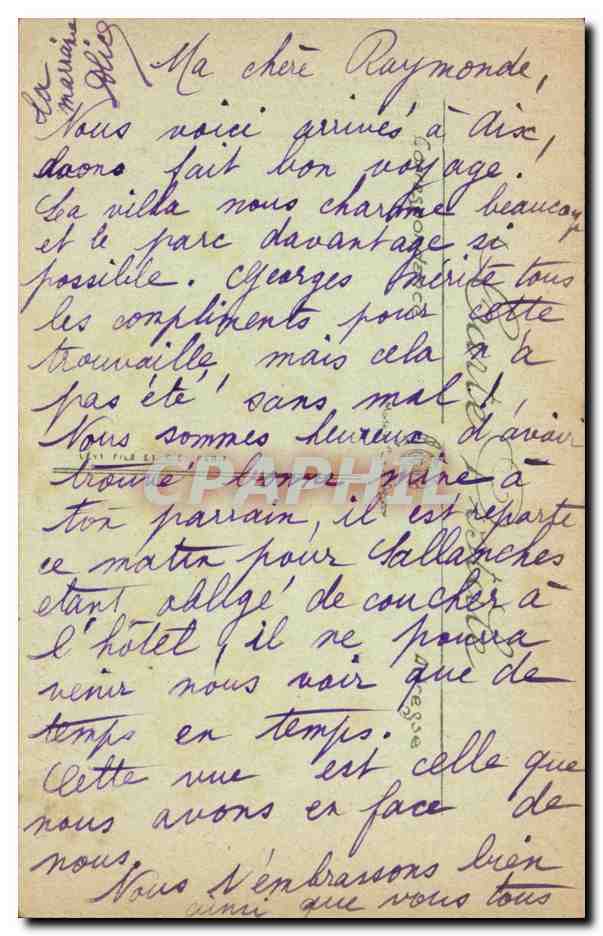 Ma chère Raymonde,
Nous voici arrivés à Aix,
avons fait bon voyage.
La villa nous charme beaucoup
et le parc davantage si
possible. Georges mérite tous
les compliments pour cette
trouvaille, mais cela n'a
pas été sans mal!
Nous sommes heureux d'avoir
trouvé bonne mine à
ton parrain, il est reparti
ce matin pour Sallanches
étant obligé de coucher à
l'hôtel, il ne pourra
venir nous voir que de
temps en temps.
Cette vue est celle que
nous avons en face de
nous.
Nous t'embrassons bien
ainsi que vous tous
Ta
marraine
Alice
Carte Postale
Correspondance
Adresse
LEVY FILS ET
CPAPHIL